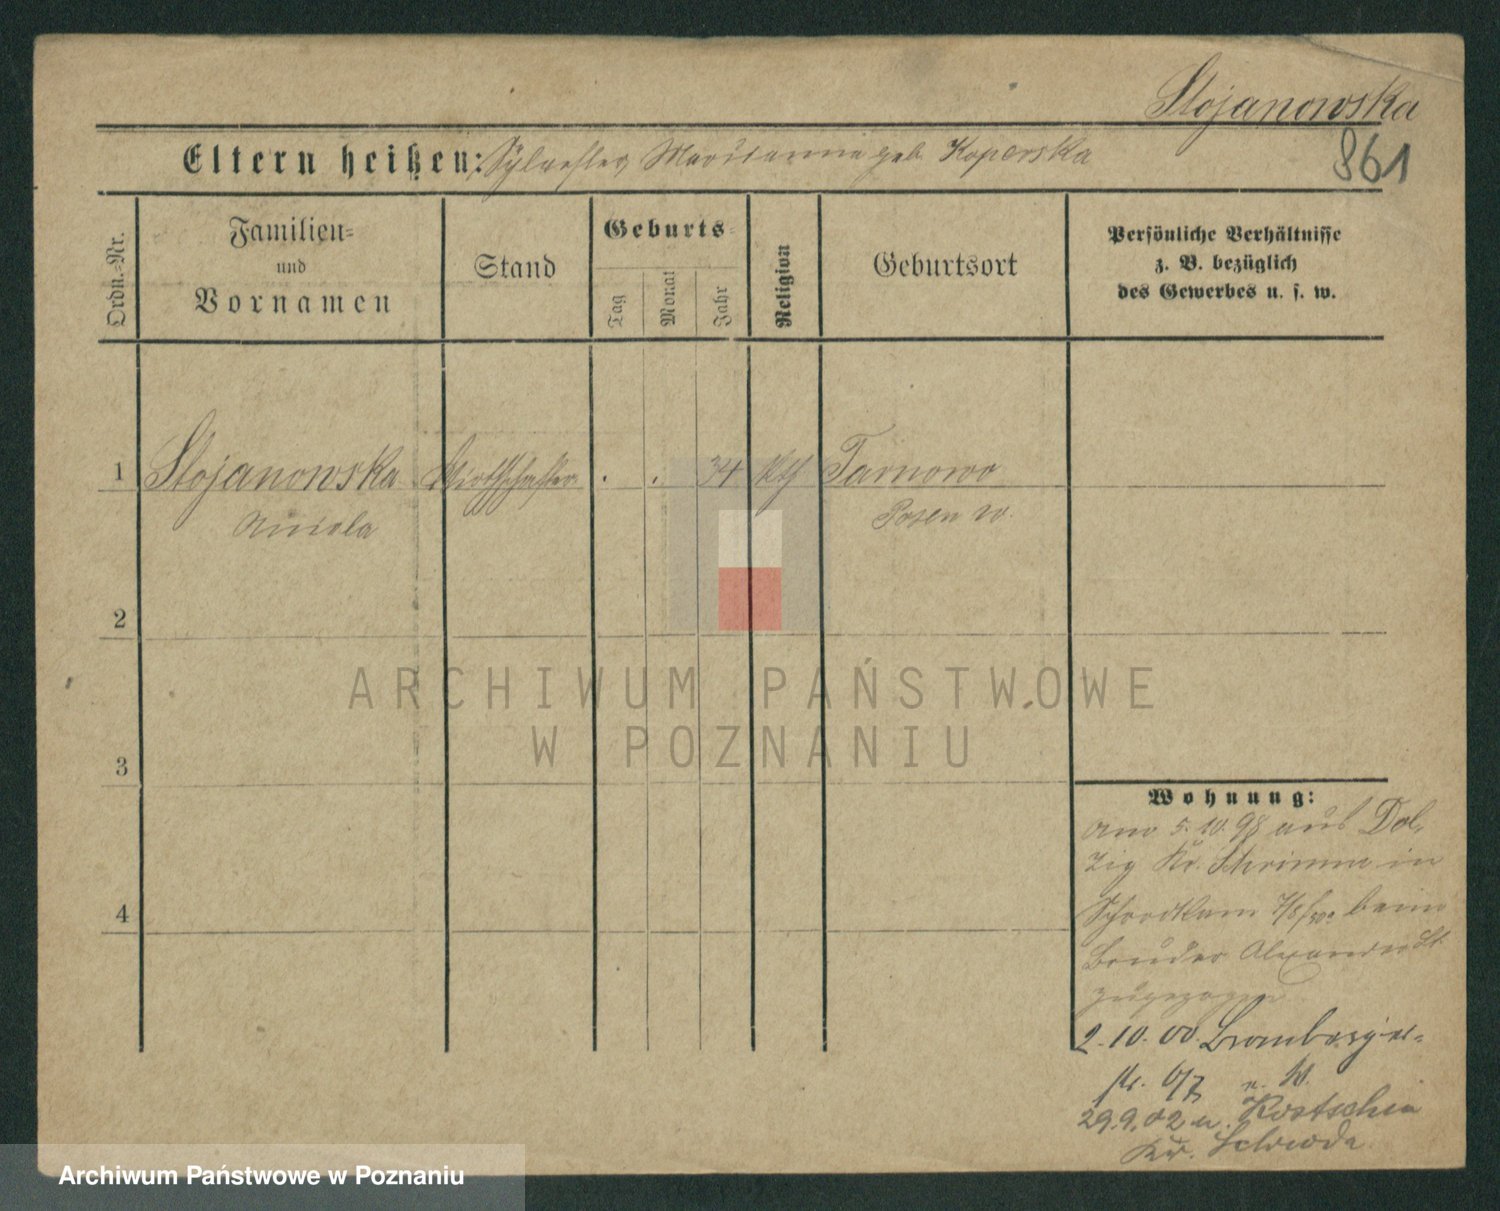 Stojanowska
861
Eltern heißen: Sylvester Marianna geb. Koperska
Ordn.=Nr.
Familien=
und
Vornamen
Stand
Geburts=
Tag
Monat
Jahr
Religion
Geburtsort
Persönliche Verhältnisse
z. B. bezüglich
des Gewerbes u. s. w.
1 Stojanowska Wirthschafter . . 34 kth Tarnowo
Aniela Posen W.
2
3
4
Wohnung:
am 5.10.98 aus Dol-
zig Kr. Schrimm in
7/8 beim
Bruder Alexander St.
zugezogen
2.10.00. Bromberger-
str. 6/7 n. W.
29.9.02 n. Kostschin
Kr. Schroda
ARCHIWUM PAŃSTWOWE
W POZNANIU
Archiwum Państwowe w Poznaniu